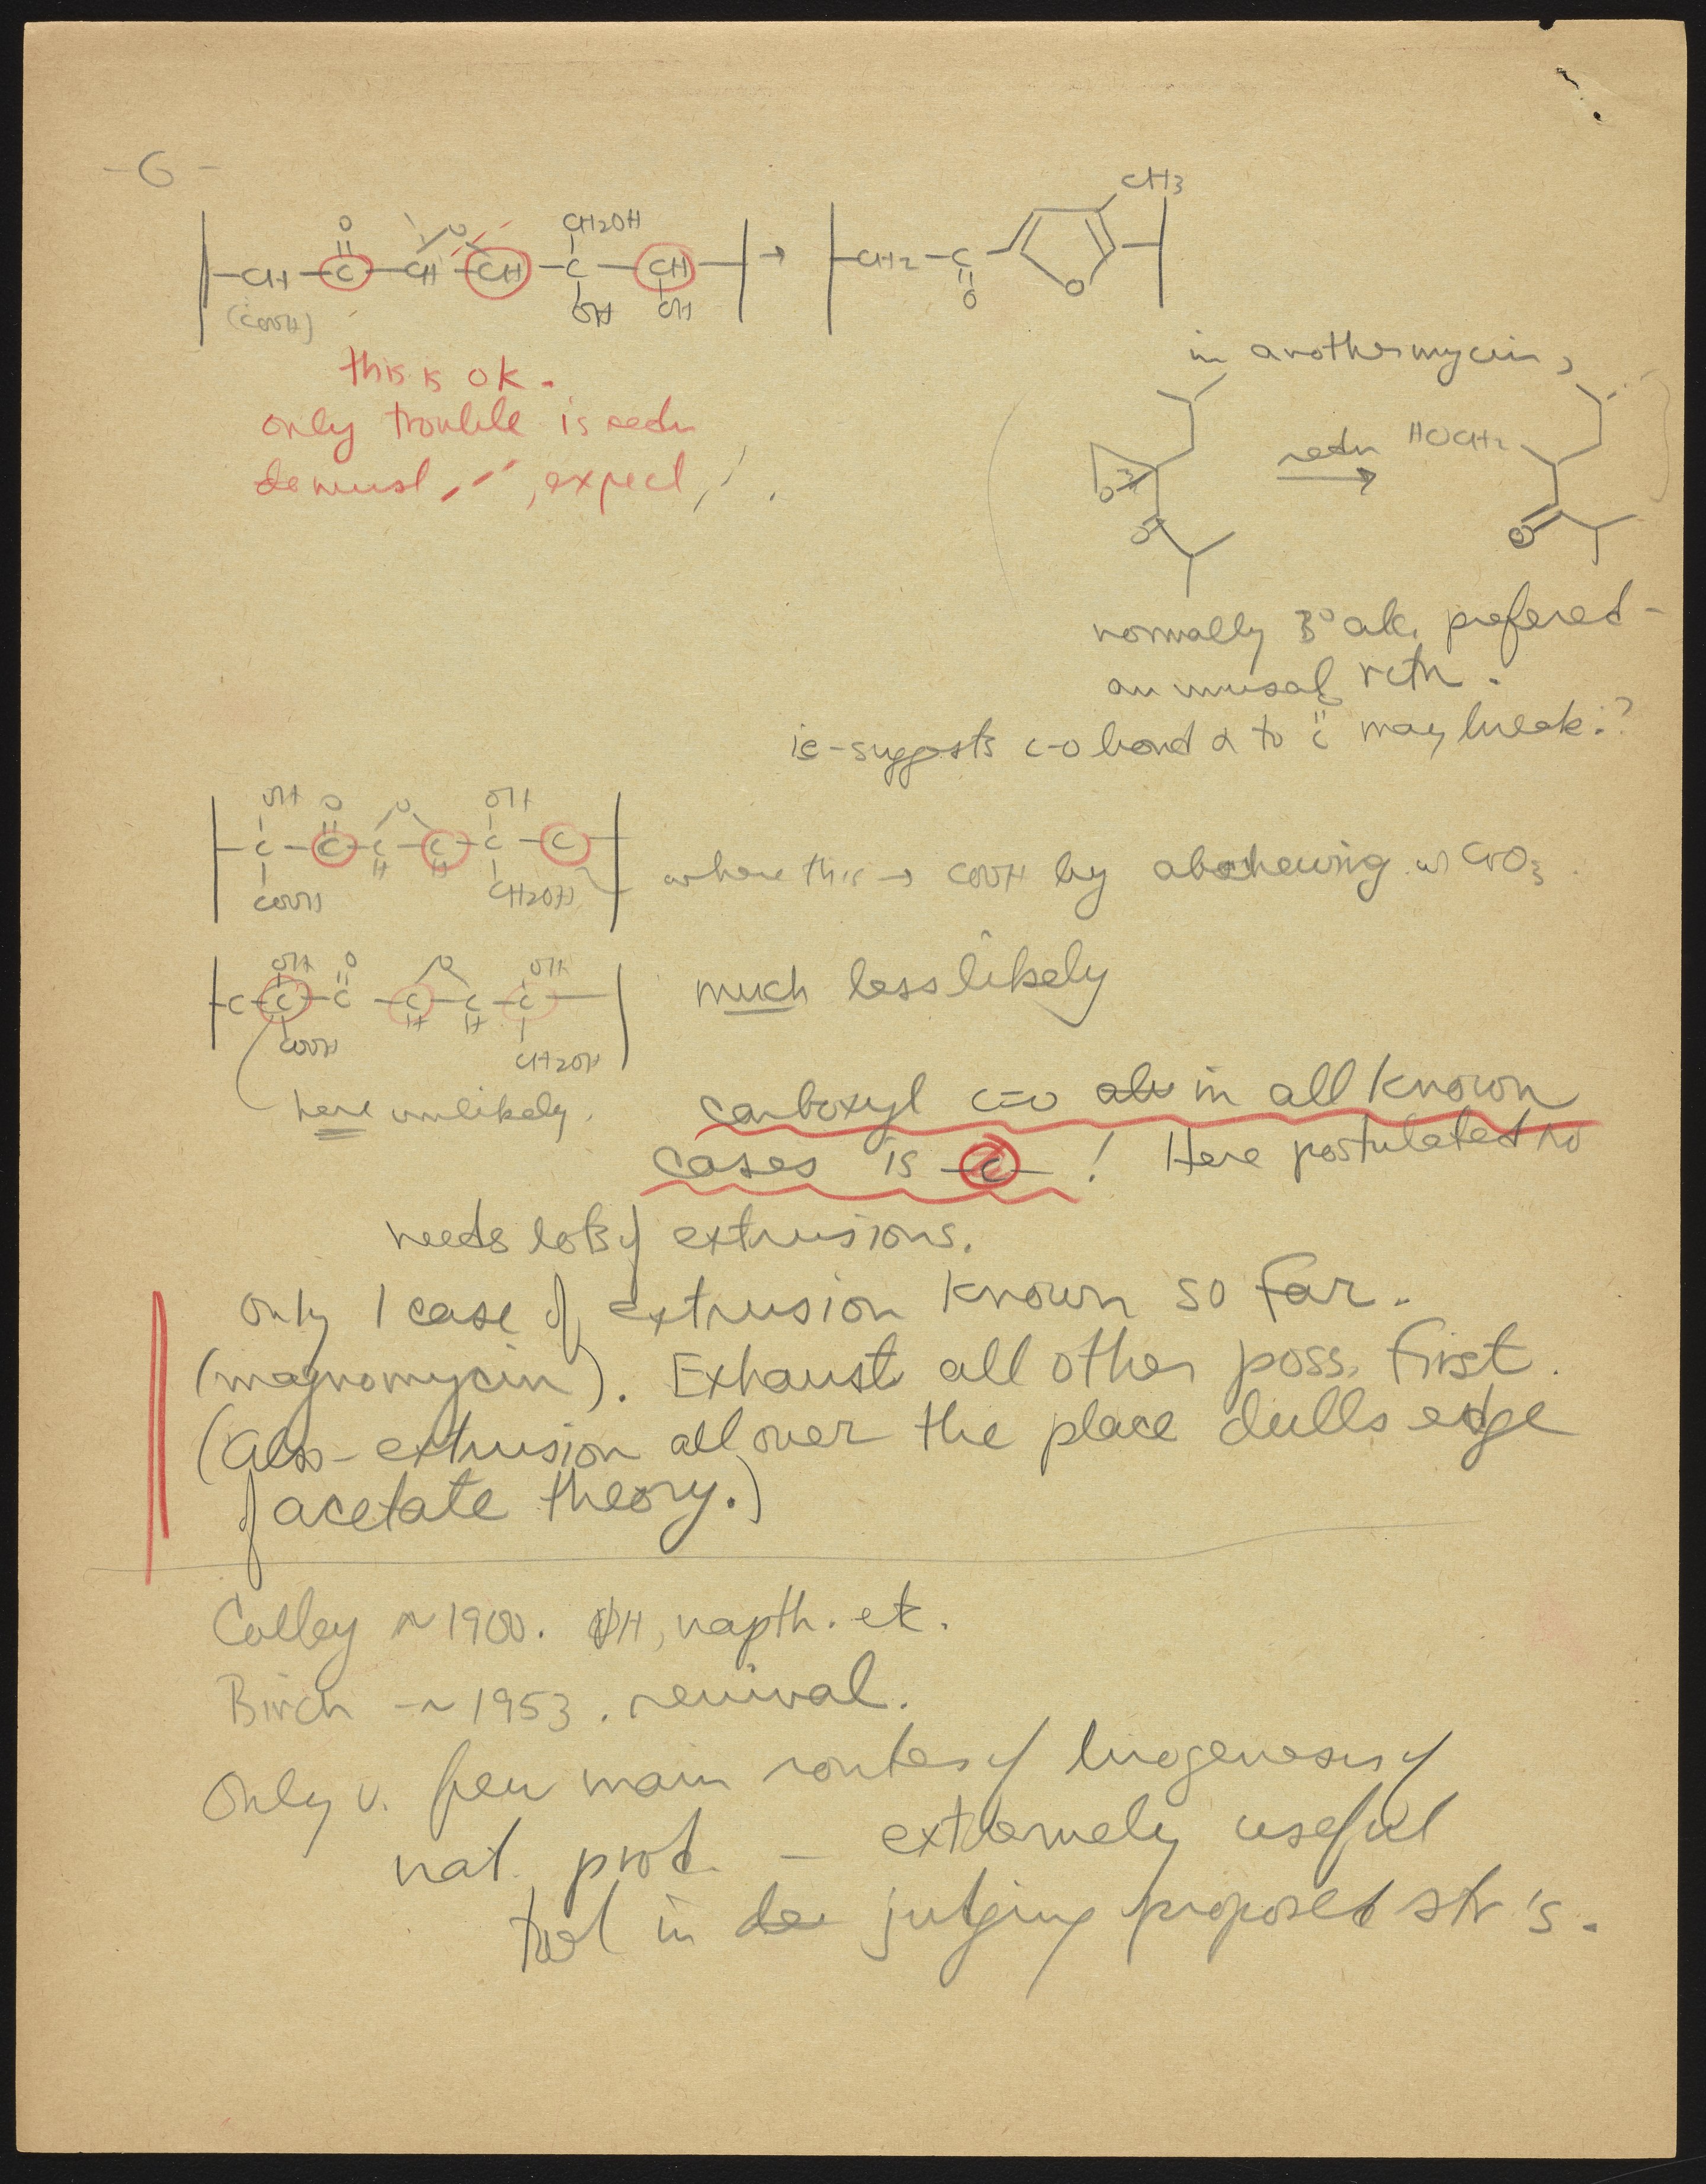 -6-
O CH2OH CH3
CH C CH CH C CH → CH2-C O
(COOH) O OH OH O
in anothermycin,
this is ok.
only trouble is redn
expect
redn HOCH2
O O
normally 3° alc. prefered -
an unusal rctn.
ie-suggests C-O bond α to C may break?
OH O O OH
C C C C C C
H H
COOH CH2OH
where this → COOH by w CrO3
OH O O OH
C C C C C C
H H
COOH CH2OH
much less likely
here unlikely.
carboxyl C=O in all known
cases is -C- ! Here postulated no
needs lots of extrusions.
only 1 case of extrusion known so far.
(magnomycin). Exhaust all other poss. first.
(also - extrusion all over the place dulls edge
of acetate theory.)
Colley ~1900. ØH, napth. etc.
Birch -~1953. revival.
Only v. few main routes of biogenesis of
nat. prod. - extremely useful
tool in judging proposed str's.